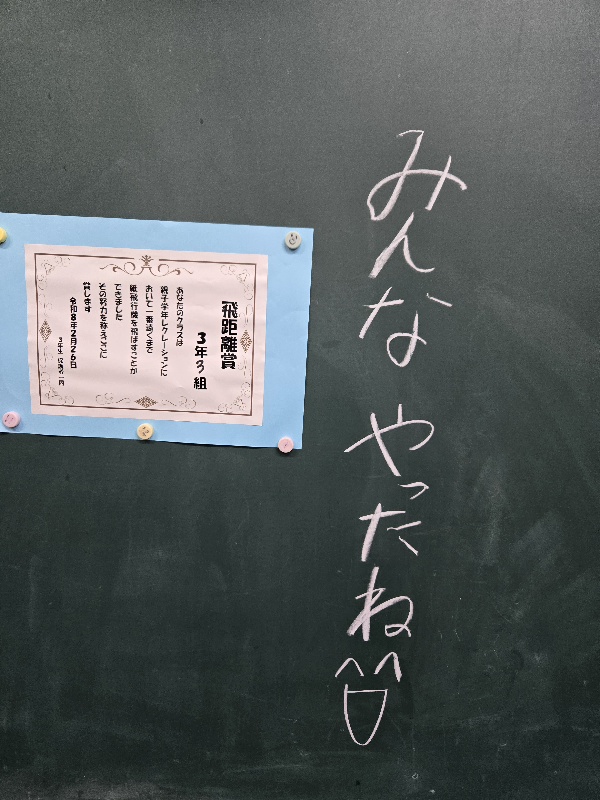 みんな やったね
飛距離賞
3年3組
あなたのクラスは
親子学年レクレーションに
おいて一番遠くまで
紙飛行機を飛ばすことが
できました
その努力を称えここに
賞します
令和8年2月26日
3年生